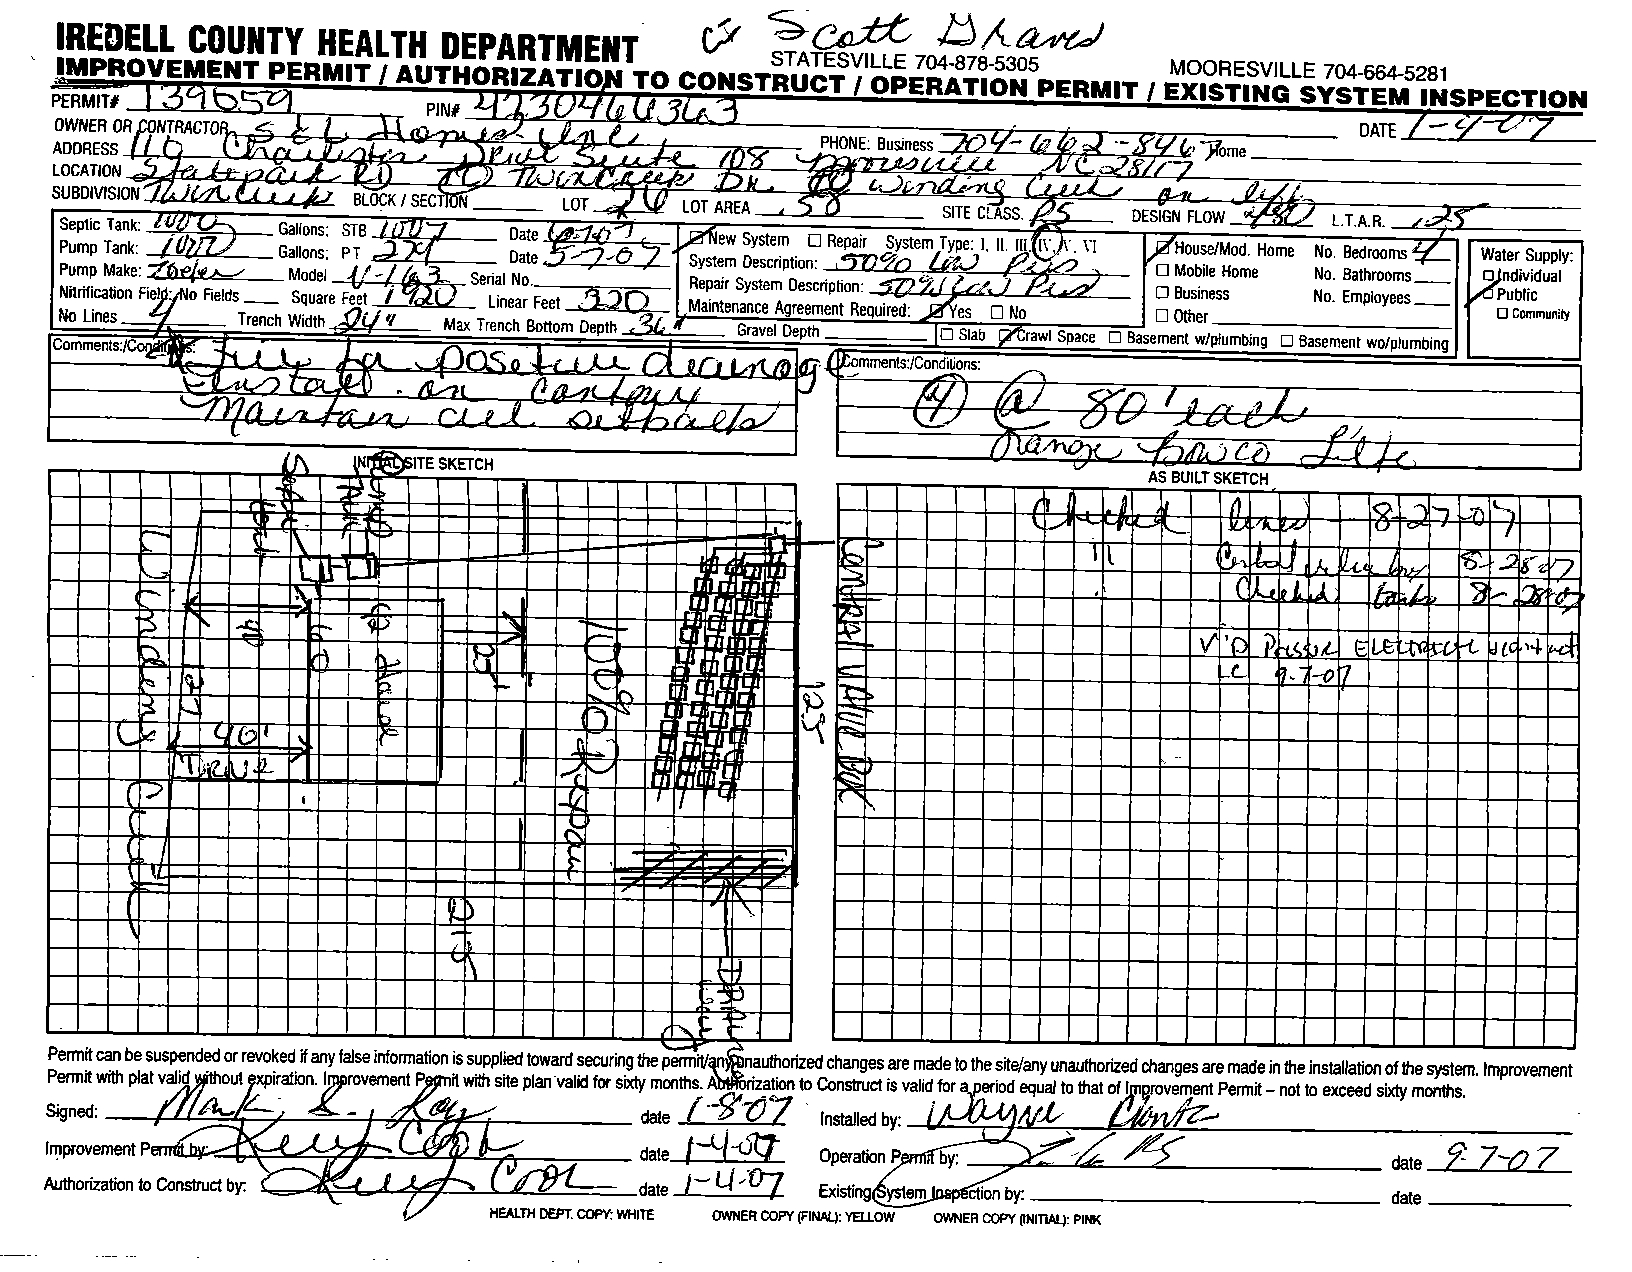 Scott Graves
IREDELL COUNTY HEALTH DEPARTMENT
STATESVILLE 704-878-5305 MOORESVILLE 704-664-5281
IMPROVEMENT PERMIT / AUTHORIZATION TO CONSTRUCT / OPERATION PERMIT / EXISTING SYSTEM INSPECTION
PERMIT# 139659 PIN# 4730466363
OWNER OR CONTRACTOR S & L Homes Inc PHONE: Business 704-662-846 Home DATE 1-4-07
ADDRESS 110 Drive Suite 108 Mooresville NC 28117
LOCATION State park RD Twin Creek Dr. Winding Creek on left
SUBDIVISION Twin Creek BLOCK / SECTION LOT 26 LOT AREA .58 SITE CLASS. PS DESIGN FLOW 480 L.T.A.R. .25
Septic Tank: 1000 Gallons: STB 1007 Date
Pump Tank: 1000 Gallons: PT Date 5-7-07
Pump Make: Zoeller Model N-163 Serial No.
Nitrification Field: No Fields Square Feet 1920 Linear Feet 320
No Lines 4 Trench Width 24" Max Trench Bottom Depth 36" Gravel Depth
New System Repair System Type: I, II, III, IV, V, VI
System Description: 50% Low Pres
Repair System Description: 50% Low Pres
Maintenance Agreement Required: Yes No
House/Mod. Home No. Bedrooms 4
Mobile Home No. Bathrooms
Business No. Employees
Other
Slab Crawl Space Basement w/plumbing Basement wo/plumbing
Water Supply:
Individual
Public
Community
Comments:/Conditions:
for poseture drainage
Install on contour
Maintain all setbacks
Comments:/Conditions:
(4) @ 80' each
Orange
INITIAL SITE SKETCH
Septic tank
Pump tank
Winding Creek
127
40
60
40'
DRIVE
house
25'
100% Repair
125
CONTROL VALVE BOX
215
Drainage way
AS BUILT SKETCH
Checked lines 8-27-07
" Control valve box 8-28-07
" Checked tanks 8-28-07
V'D PRESSURE ELECTRICAL
LC 9-7-07
Permit can be suspended or revoked if any false information is supplied toward securing the permit/any unauthorized changes are made to the site/any unauthorized changes are made in the installation of the system. Improvement
Permit with plat valid without expiration. Improvement Permit with site plan valid for sixty months. Authorization to Construct is valid for a period equal to that of Improvement Permit – not to exceed sixty months.
Signed: Mark S. date 1-8-07 Installed by: Wayne
Improvement Permit by: Kelly Cook date 1-4-07 Operation Permit by: RS date 9-7-07
Authorization to Construct by: Kelly Cook date 1-4-07 Existing System Inspection by: date
HEALTH DEPT. COPY: WHITE OWNER COPY (FINAL): YELLOW OWNER COPY (INITIAL): PINK